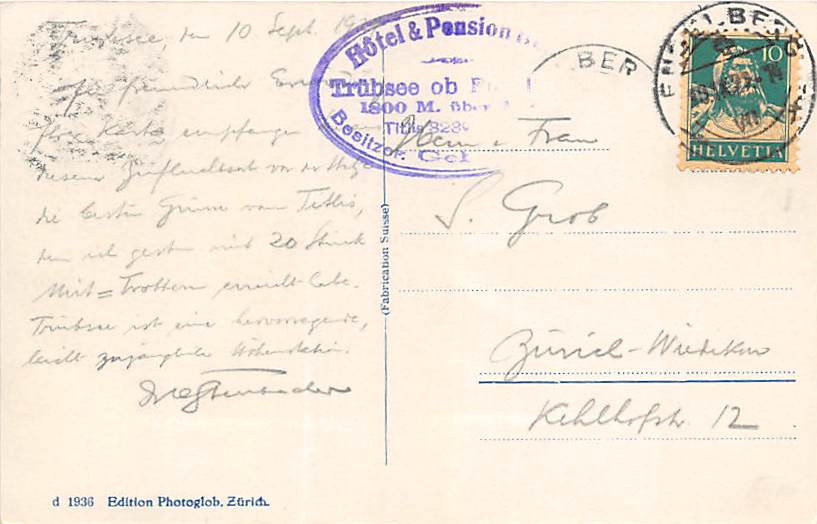 Trübsee, den 10 Sept.
freundlicher Erinnerung
Ihre Karte empfangen
die besten Grüsse vom Titlis,
den ich gestern mit 20 Stück
Mit=Trotteln erreicht habe.
Trübsee ist eine hervorragende,
leicht zugängliche Höhenstation.
Hôtel & Pension
Trübsee ob
1800 M. über
Titlis 3239
Besitzer: Geb
BERG
ENGELBERG
10
HELVETIA
Herrn u. Frau
S. Grob
Zürich-Wiedikon
Kehlhofstr. 12
(Fabrication Suisse)
d 1936 Edition Photoglob, Zürich.